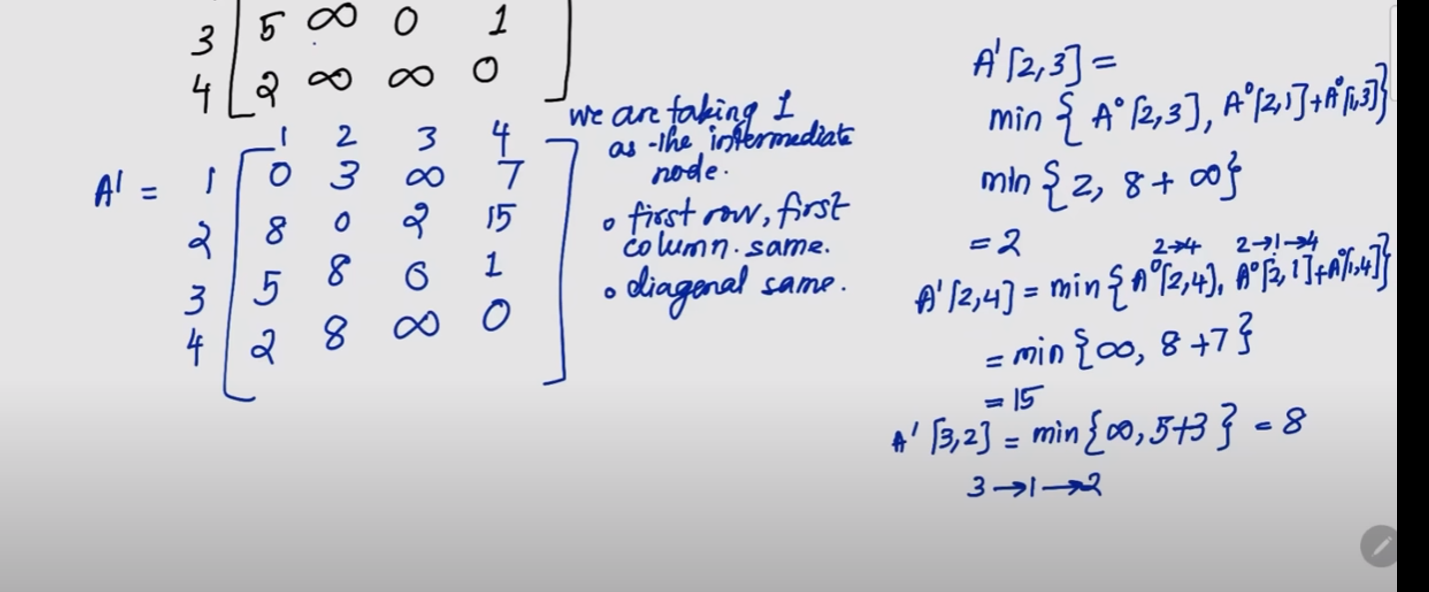 3 5 ∞ 0 1
4 2 ∞ ∞ 0
1 2 3 4
A¹ = 1 0 3 ∞ 7
2 8 0 2 15
3 5 8 0 1
4 2 8 ∞ 0
we are taking 1
as the intermediate
node.
o first row, first
column. same.
o diagonal same.
A¹[2,3] =
min { A⁰[2,3], A⁰[2,1]+A⁰[1,3]}
min {2, 8 + ∞}
= 2
2→4 2→1→4
A¹[2,4] = min {A⁰[2,4], A⁰[2,1]+A⁰[1,4]}
= min {∞, 8+7}
= 15
A¹[3,2] = min {∞, 5+3} = 8
3→1→2